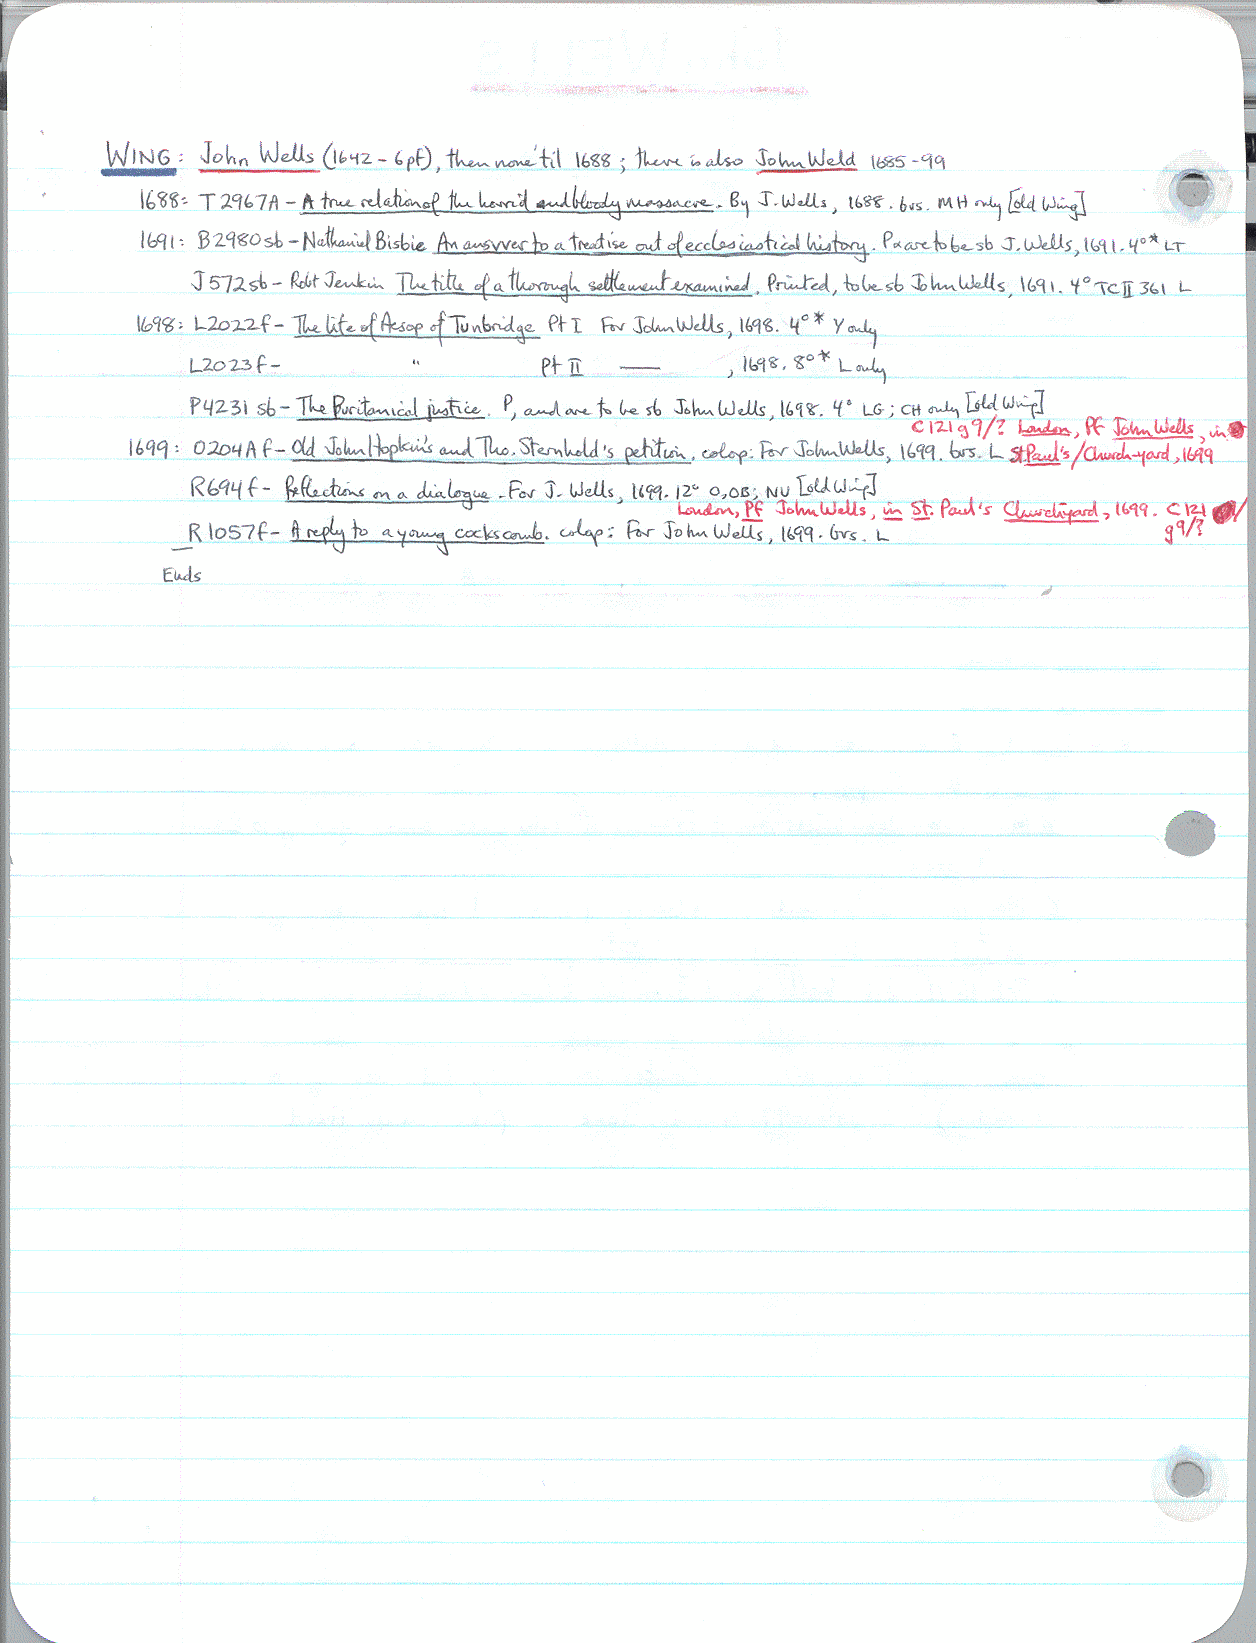 WING: John Wells (1642-6pf), then none 'til 1688; there is also John Weld 1685-99
1688: T2967A - A true relation of the horrid and bloody massacre. By J. Wells, 1688. brs. MH only [old Wing]
1691: B2980sb - Nathaniel Bisbie An answer to a treatise out of ecclesiastical history. P & are to be sb J. Wells, 1691. 4°* LT
J572sb - Robt Jenkin The title of a thorough settlement examined. Printed, to be sb John Wells, 1691. 4° TC II 361 L
1698: L2022f - The life of Aesop of Tunbridge Pt I For John Wells, 1698. 4°* Y only
L2023f - " Pt II —— , 1698. 8°* L only
P4231sb - The Puritanical justice. P, and are to be sb John Wells, 1698. 4° LG; CH only [old Wing]
C121g9/? London, Pf John Wells, in
1699: O204Af - Old John Hopkin's and Tho. Sternhold's petition. colop: For John Wells, 1699. brs. L St Paul's/Church-yard, 1699
R694f - Reflections on a dialogue. For J. Wells, 1699. 12° O, OB; NU [old Wing]
London, Pf John Wells, in St. Paul's Churchyard, 1699. C121
R1057f - A reply to a young cockscomb. colop: For John Wells, 1699. brs. L g9/?
Ends